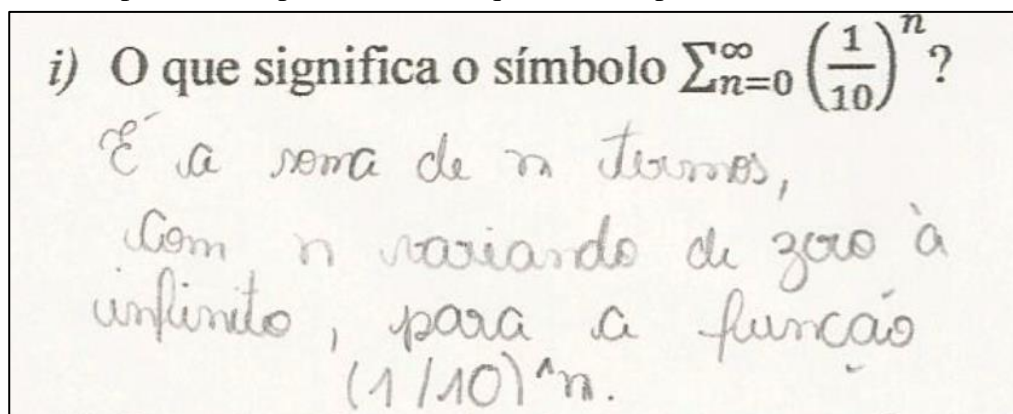 i) O que significa o símbolo $\sum_{n=0}^{\infty} \left(\frac{1}{10}\right)^n$?
É a soma de n termos,
com n variando de zero à
infinito, para a função
(1/10)^n.